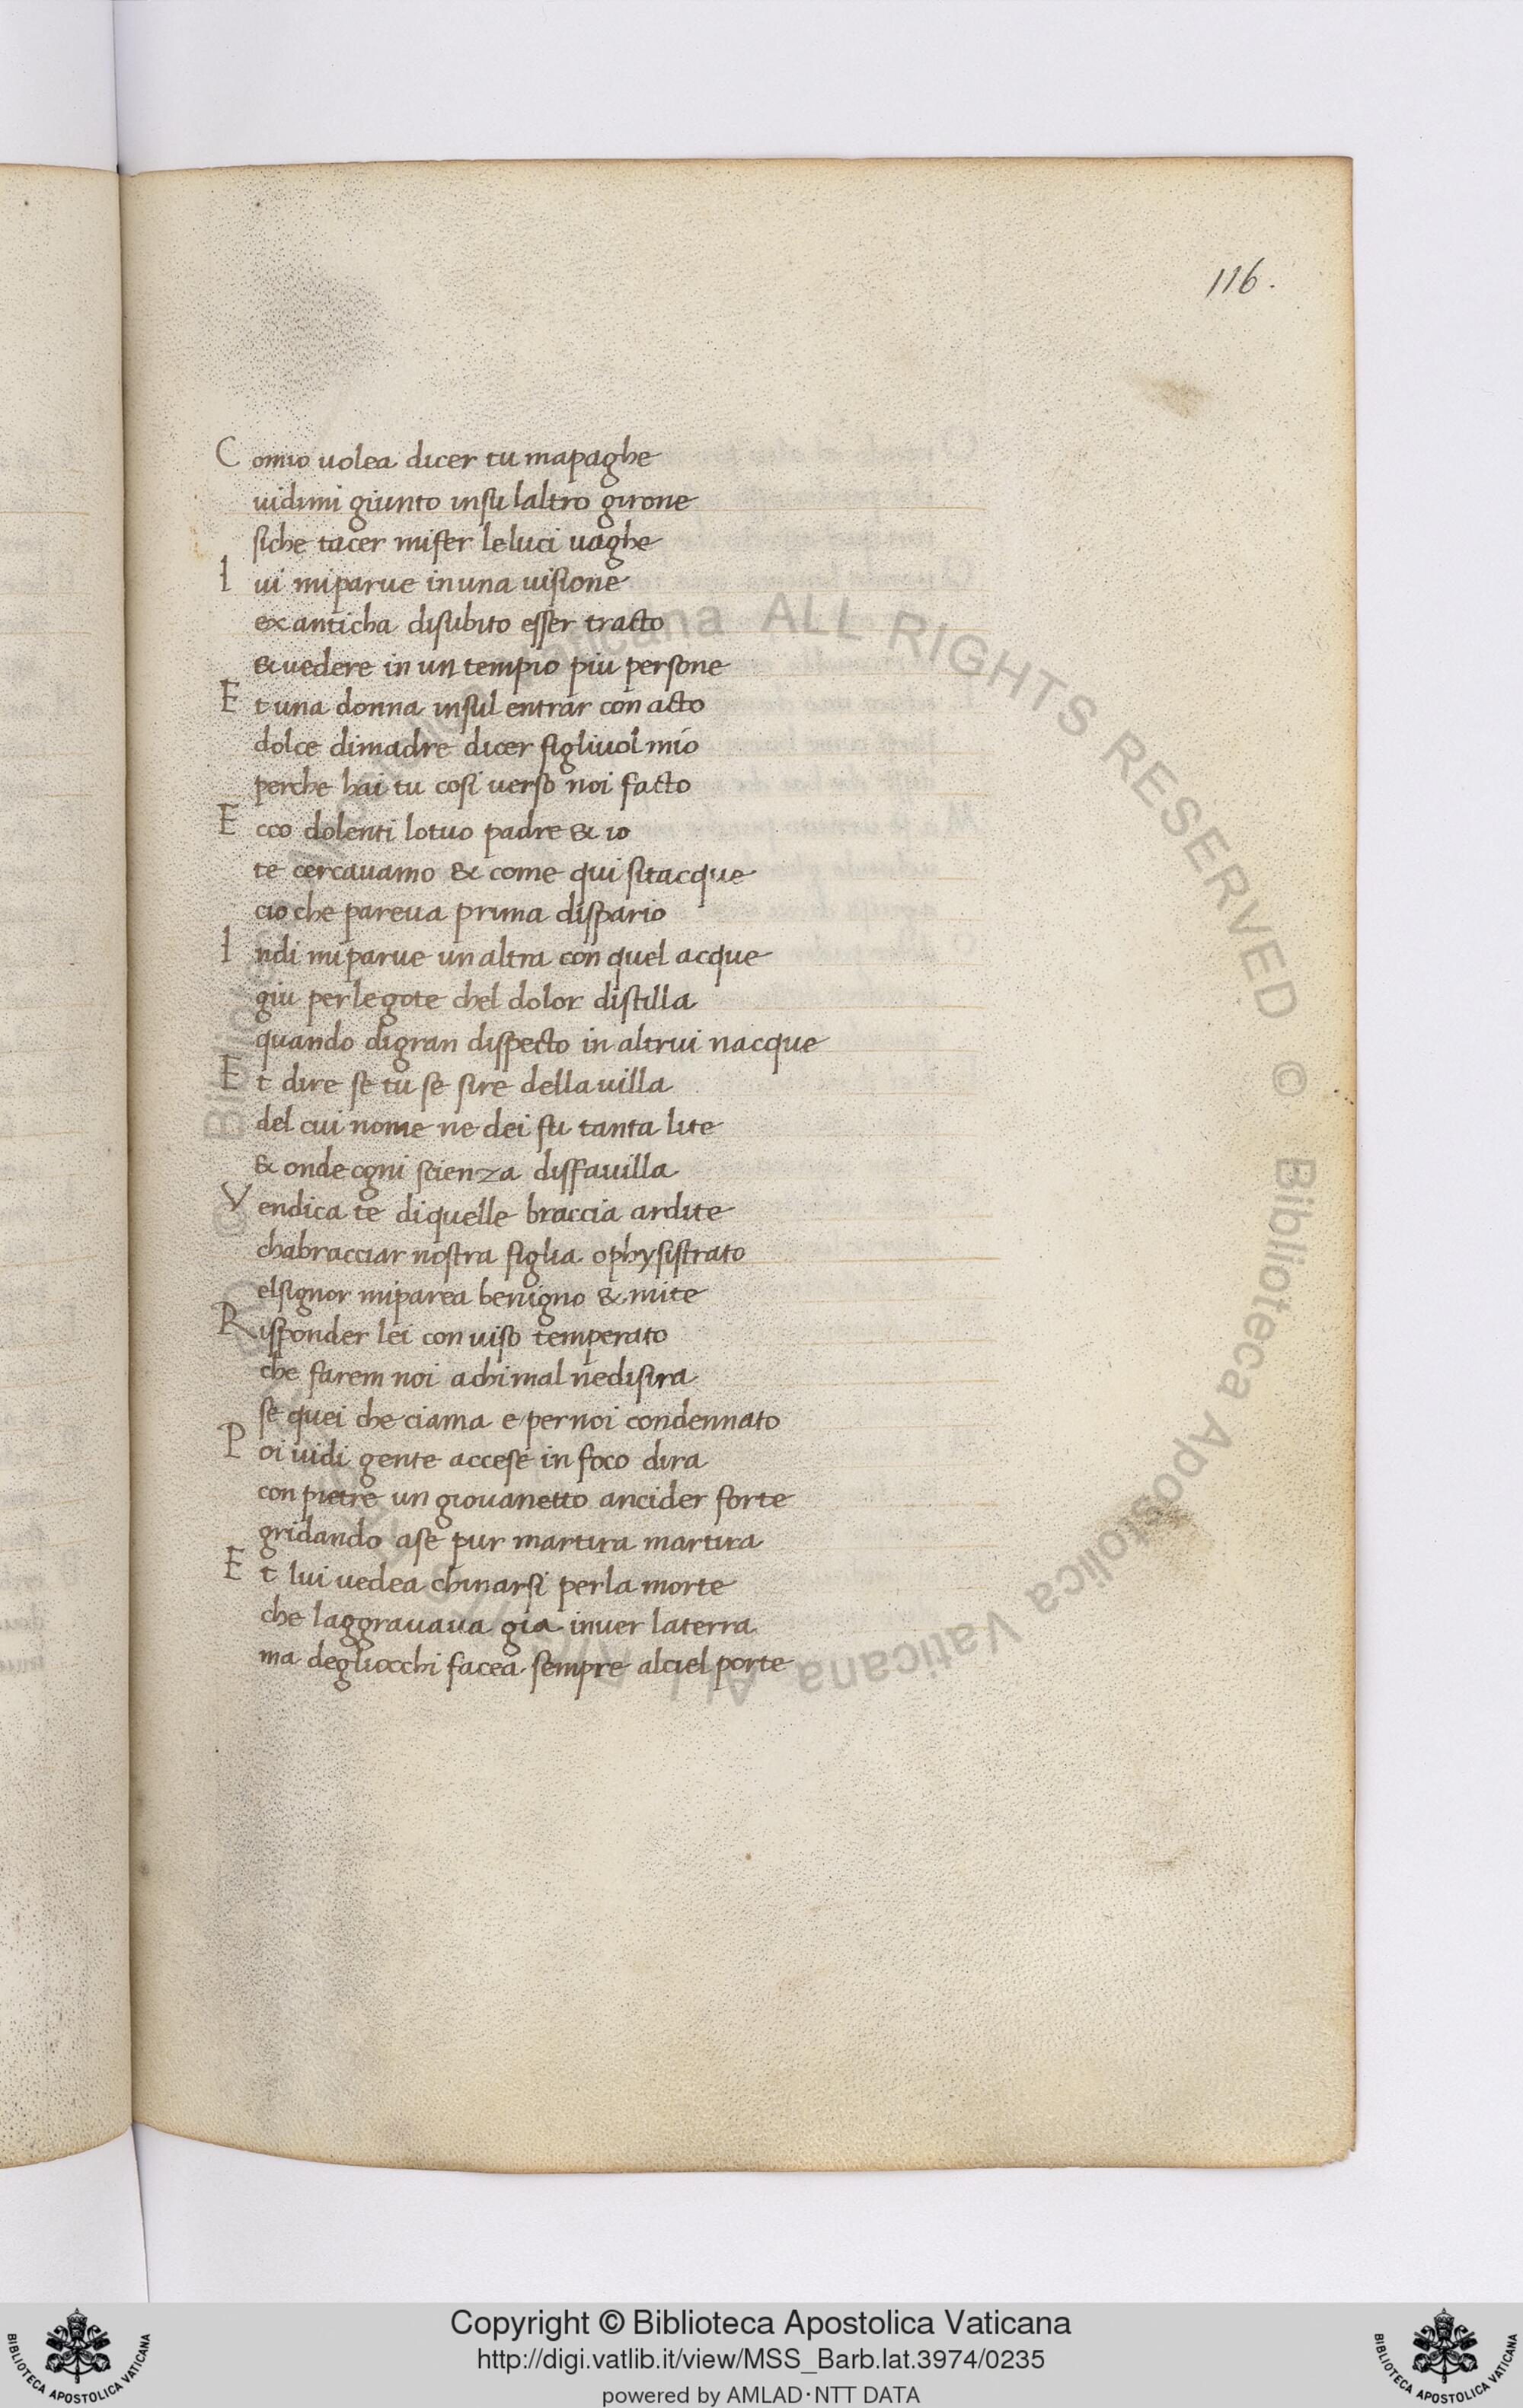 116.
Comio uolea dicer tu mapaghe
uidimi giunto insu laltro girone
siche tacer mifer leluci uaghe
Iui miparue inuna uisione
exanticha disubito esser tracto
& uedere in un tempio piu persone
Et una donna insul entrar con acto
dolce dimadre dicer figliuol mio
perche hai tu cosi uerso noi facto
Ecco dolenti lotuo padre & io
te cercauamo & come qui sitacque
cio che pareua prima dispario
Indi miparue unaltra con quel acque
giu perlegote chel dolor distilla
quando digran dispecto in altrui nacque
Et dire se tu se sire dellauilla
del cui nome ne dei fu tanta lite
& onde ogni scienza disfauilla
Vendica te diquelle braccia ardite
chabracciar nostra figlia ophysistrato
elsignor miparea benigno & mite
Risponder lei con uiso temperato
che farem noi achimal nedisira
se quei che ciama e pernoi condennato
Poi uidi gente accese in foco dira
con pietre un giouanetto ancider forte
gridando ase pur martira martira
Et lui uedea chinarsi perla morte
che laggrauaua gia inuer laterra
ma degliocchi facea sempre alciel porte
© Biblioteca Apostolica Vaticana ALL RIGHTS RESERVED
Copyright © Biblioteca Apostolica Vaticana
http://digi.vatlib.it/view/MSS_Barb.lat.3974/0235
powered by AMLAD·NTT DATA
BIBLIOTECA APOSTOLICA VATICANA
BIBLIOTECA APOSTOLICA VATICANA